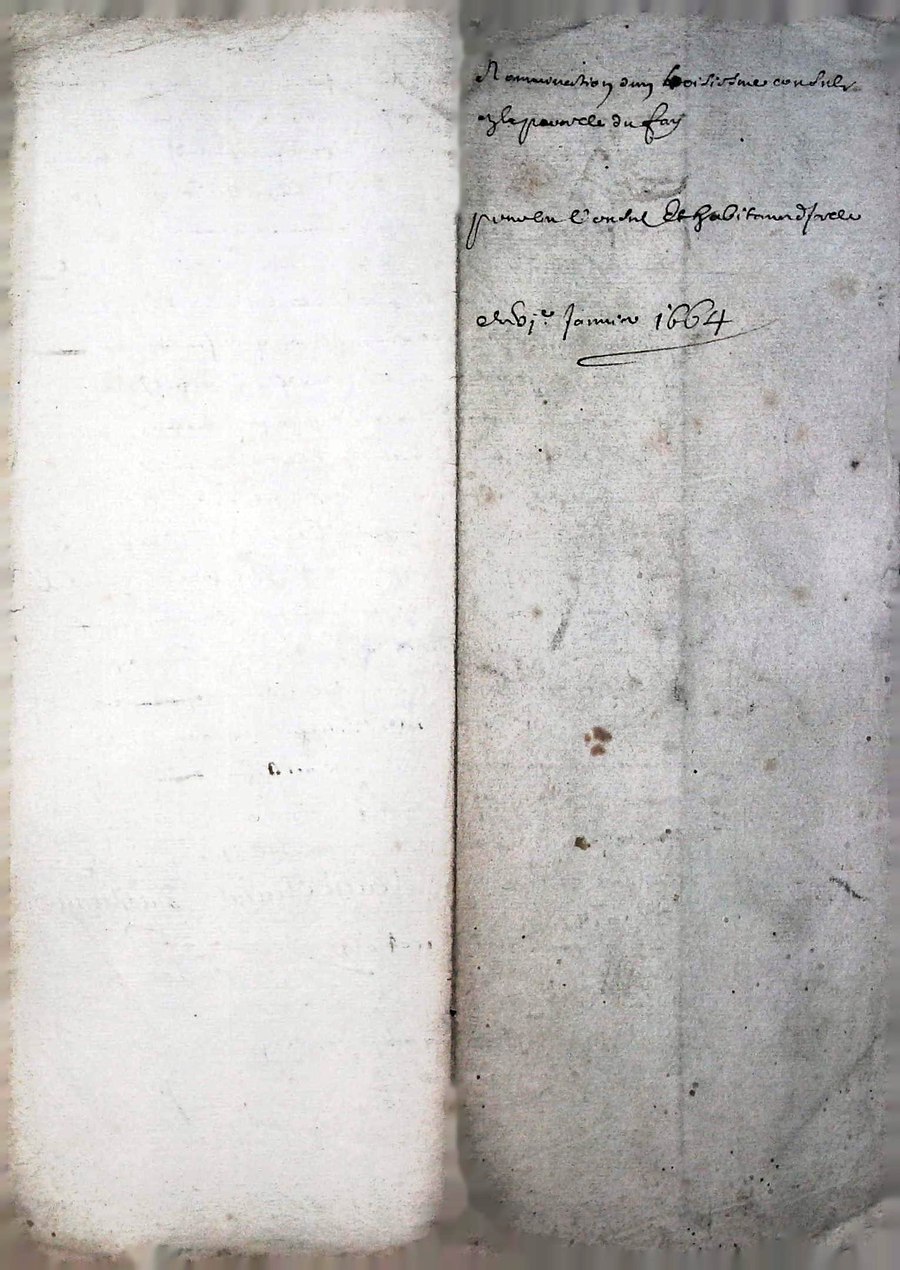 Nommination dun troisiesme consul
 la parroesse du fay
pour les Consul Et habitans dicelle
du vje Janvier 1664